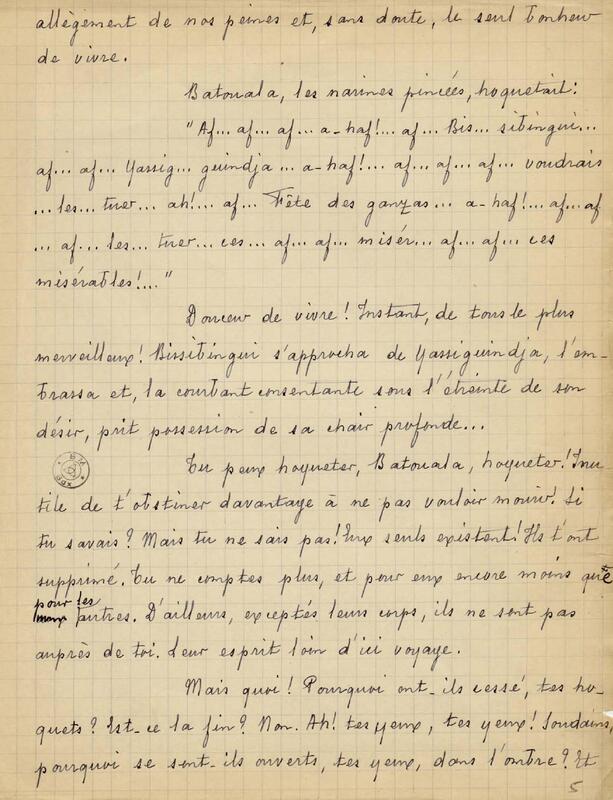 allègement de nos peines et, sans doute, le seul bonheur
de vivre.
Batouala, les narines pincées, hoquetait:
"Af... af... af... a-haf!... af... Bis... sitingui...
af... af... Yassig... guindja... a-haf!... af... af... af... voudrais
... les... tuer... ah!... af... Fête des ganzas... a-haf!... af... af
... af... les... tuer... ces... af... af... misér... af... af... ces
misérables!..."
Douceur de vivre! Instant, de tous le plus
merveilleux! Bissibingui s'approcha de Yassiguindja, l'em-
brassa et, la courbant consentante sous l'étreinte de son
désir, prit possession de sa chair profonde...
Tu peux hoqueter, Batouala, hoqueter! Inu-
tile de t'obstiner davantage à ne pas vouloir mourir. Si
tu savais? Mais tu ne sais pas! Eux seuls existent! Ils t'ont
supprimé. Tu ne comptes plus, et pour eux encore moins que
pour les
autres. D'ailleurs, exceptés leurs corps, ils ne sont pas
auprès de toi. Leur esprit loin d'ici voyage.
Mais quoi! Pourquoi ont-ils cessé, tes ho-
quets? Est-ce la fin? Non. Ah! tes yeux, tes yeux! Soudains,
pourquoi se sont-ils ouverts, tes yeux, dans l'ombre? Et
5